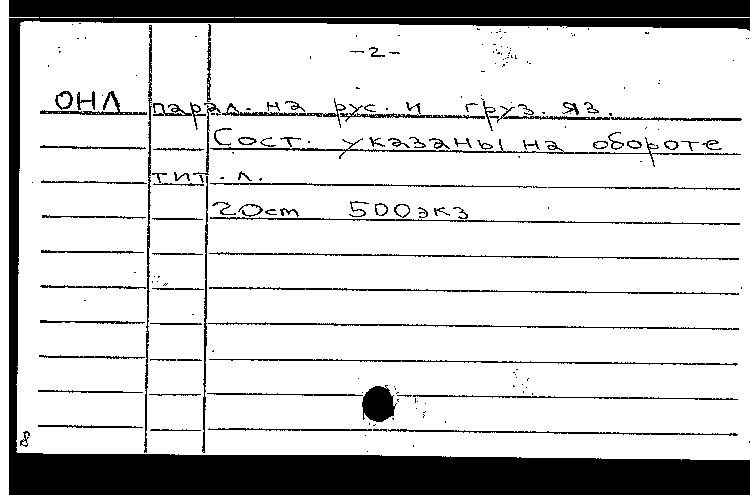 -2-
ОНЛ парал. на рус. и груз. яз.
Сост. указаны на обороте
тит. л.
20ст 500экз
8